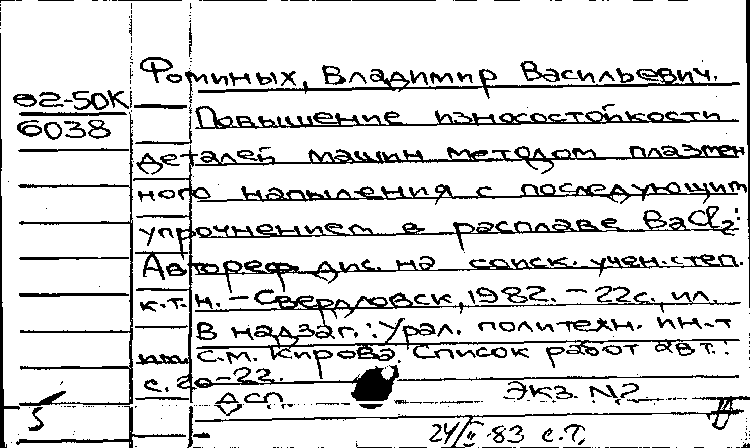 Фоминых, Владимир Васильевич.
82-50К
6038
Повышение износостойкости
деталей машин методом плазмен
ного напыления с последующим
упрочнением в расплаве BaCl2:
Автореф. дис. на соиск. учен. степ.
к.т.н. - Свердловск, 1982. - 22с., ил.
В надзаг.: Урал. политехн. ин-т
им. С.М. Кирова. Список работ авт.:
с. 20-22.
ДСП. Экз. N2
5
24/II 83 с.т.